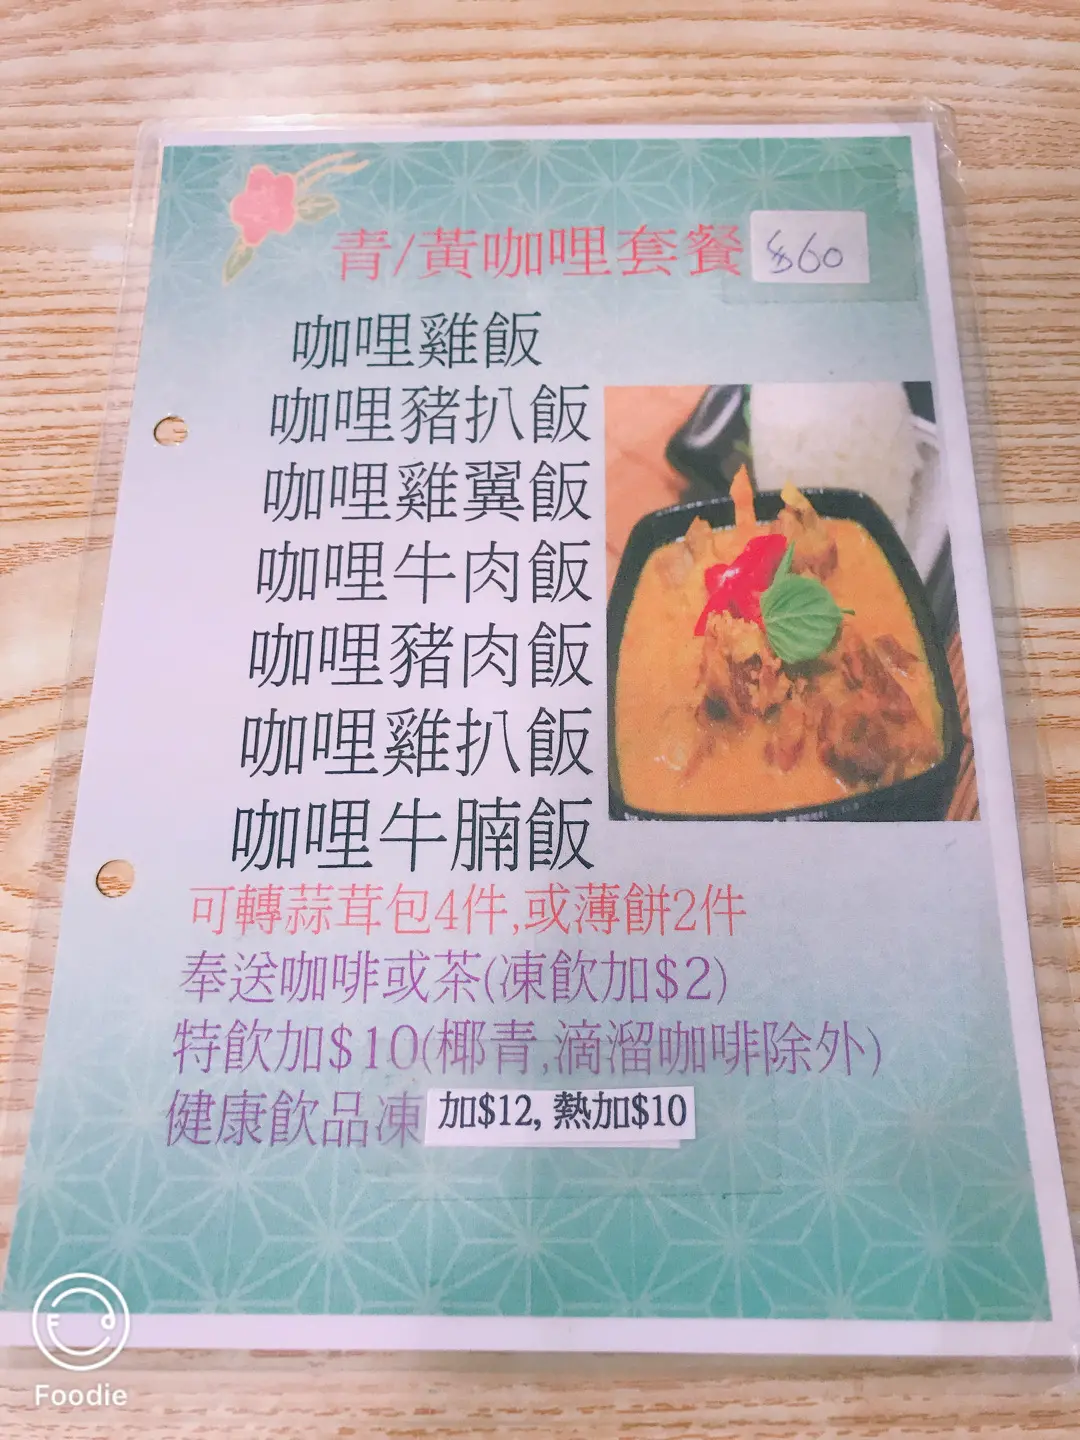 青/黃咖哩套餐 $60
咖哩雞飯
咖哩豬扒飯
咖哩雞翼飯
咖哩牛肉飯
咖哩豬肉飯
咖哩雞扒飯
咖哩牛腩飯
可轉蒜茸包4件,或薄餅2件
奉送咖啡或茶(凍飲加$2)
特飲加$10(椰青,滴溜咖啡除外)
健康飲品凍 加$12, 熱加$10
Foodie